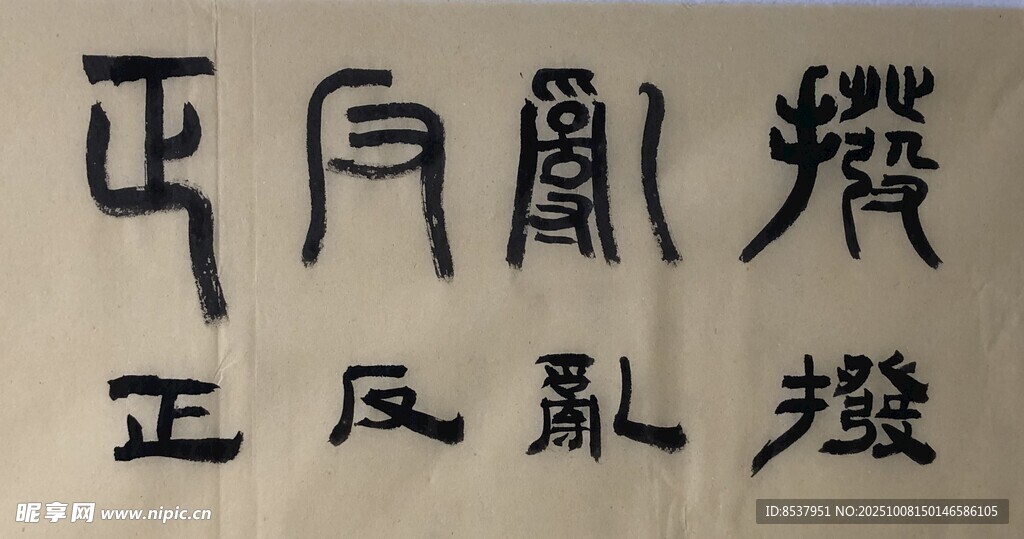 撥亂反正
撥亂反正
昵享网 www.nipic.cn
ID:8537951 NO:20251008150146586105